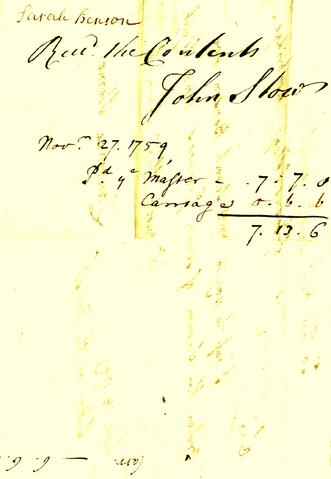 Sarah Benson
Recd. the Contents
John Stow
Novr. 27. 1759
Pd ye Master - . 7 . 7 . 0
Carriage 0 . 6 . 6
7 . 13 . 6
- 6 . 6